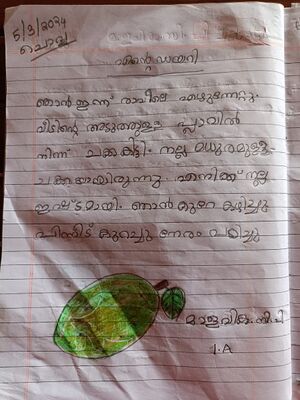 5/3/2024
ചൊവ്വ
എന്റെ ഡയറി
ഞാൻ ഇന്ന് രാവിലെ എഴുന്നേറ്റു.
വീടിന്റെ അടുത്തുള്ള പ്ലാവിൽ
നിന്ന് ചക്ക കിട്ടി. നല്ല മധുരമുള്ള
ചക്കയായിരുന്നു. എനിക്ക് നല്ല
ഇഷ്ടമായി. ഞാൻ കുറേ കഴിച്ചു
പിന്നീട് കുറച്ചു നേരം കളിച്ചു
മാളവിക. സി. പി
1. A